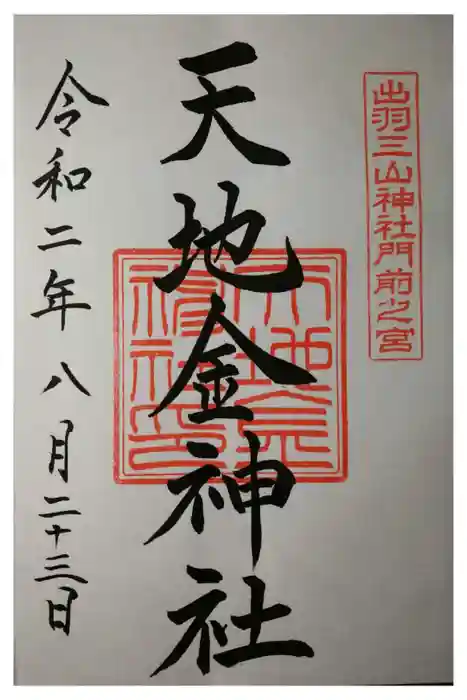 出羽三山神社門前之宮
天地金神社
令和二年八月二十三日